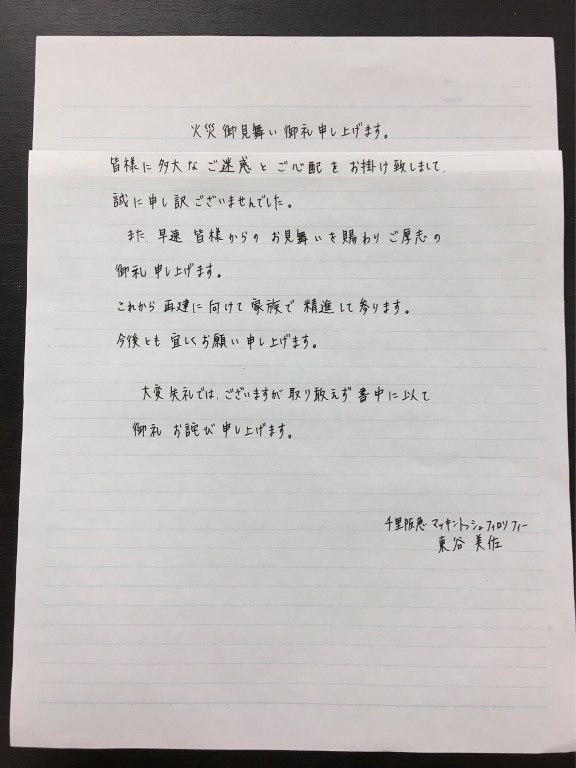 火災 御見舞い 御礼 申し上げます。
皆様に 多大な ご迷惑と ご心配を お掛け致しまして、
誠に 申し訳 ございませんでした。
また、早速 皆様からの お見舞いを 賜わり ご厚志の
御礼 申し上げます。
これから 再建に 向けて 家族で 精進して 参ります。
今後とも 宜しく お願い 申し上げます。
大変 失礼では、ございますが 取り敢えず 書中に 以て
御礼 お詫び 申し上げます。
千里阪急 マッキントッシュ フィロソフィー
東谷 美佐